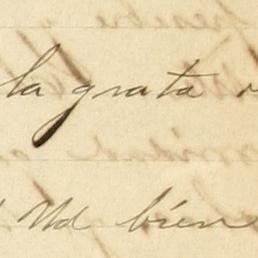 la grata
Ud bien